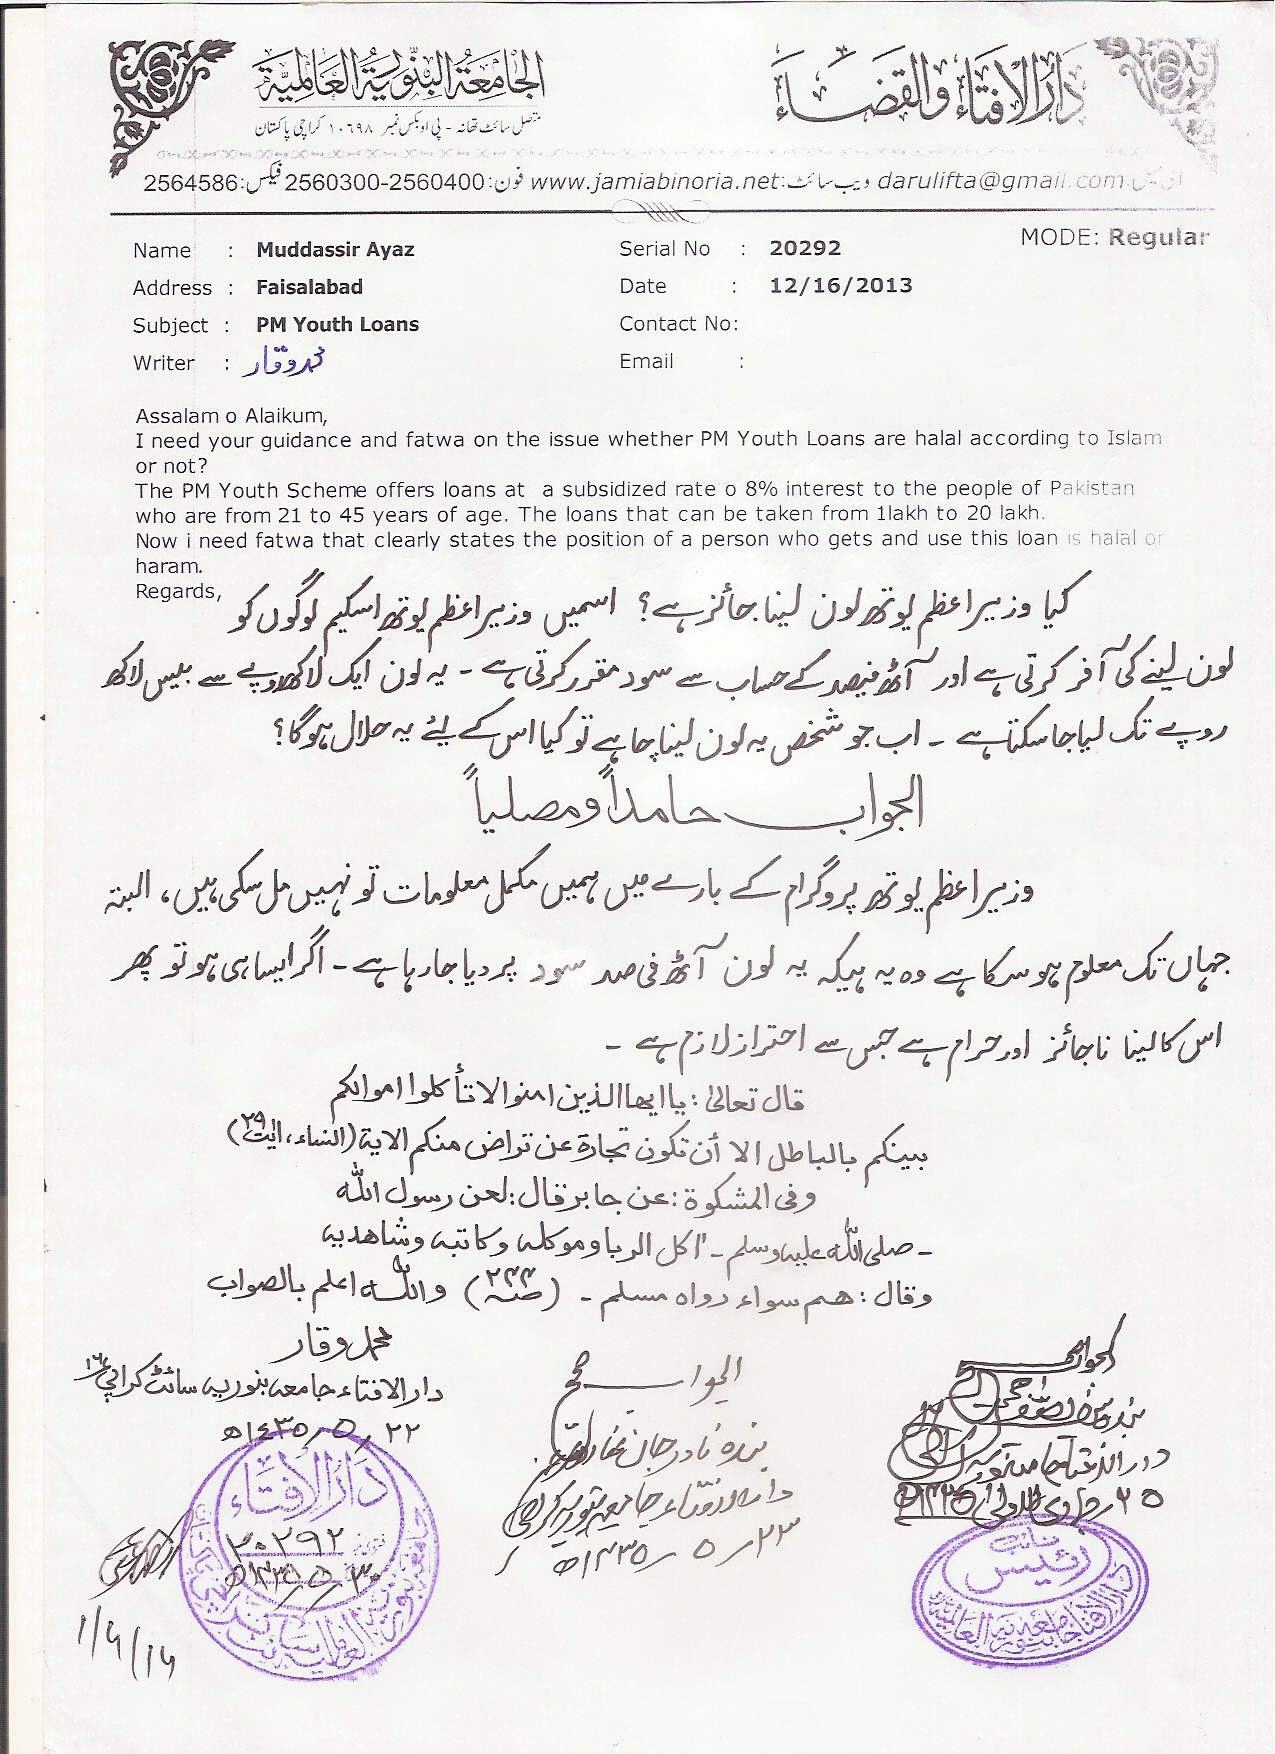 الجامعة البنورية العالمية
دار الافتاء والقضاء
متصل سائٹ تھانہ - پی او بکس نمبر ۱۰۶۹۸ کراچی پاکستان
ای میل: darulifta@gmail.com ویب سائٹ: www.jamiabinoria.net فون: 2560300-2560400 فیکس: 2564586
MODE: Regular
Name : Muddassir Ayaz Serial No : 20292
Address : Faisalabad Date : 12/16/2013
Subject : PM Youth Loans Contact No:
Writer : محمد وقار Email :
Assalam o Alaikum,
I need your guidance and fatwa on the issue whether PM Youth Loans are halal according to Islam
or not?
The PM Youth Scheme offers loans at a subsidized rate o 8% interest to the people of Pakistan
who are from 21 to 45 years of age. The loans that can be taken from 1lakh to 20 lakh.
Now i need fatwa that clearly states the position of a person who gets and use this loan is halal or
haram.
Regards,
کیا وزیراعظم یوتھ لون لینا جائز ہے؟ اسمیں وزیراعظم یوتھ اسکیم لوگوں کو
لون لینے کی آفر کرتی ہے اور آٹھ فیصد کے حساب سے سود مقرر کرتی ہے ۔ یہ لون ایک لاکھ روپے سے بیس لاکھ
روپے تک لیا جا سکتا ہے ۔ اب جو شخص یہ لون لینا چاہے تو کیا اس کے لیئے یہ حلال ہوگا؟
الجواب حامداً ومصلیاً
وزیراعظم یوتھ پروگرام کے بارے میں ہمیں مکمل معلومات تو نہیں مل سکی ہیں، البتہ
جہاں تک معلوم ہو سکا ہے وہ یہ ہیکہ یہ لون آٹھ فی صد سود پر دیا جا رہا ہے ۔ اگر ایسا ہی ہو تو پھر
اس کا لینا ناجائز اور حرام ہے جس سے احتراز لازم ہے ۔
قال تعالیٰ: یا ایھا الذین امنوا لا تأکلوا اموالکم
بینکم بالباطل الا أن تکون تجارة عن تراض منکم الایة (النساء، ایت ۲۹)
وفی المشکوة: عن جابر قال: لعن رسول اللہ
۔ صلی اللہ علیہ وسلم ۔ اکل الربا وموکلہ وکاتبہ وشاھدیہ
وقال: ھم سواء رواہ مسلم ۔ (صـ ۲۴۴) واللہ اعلم بالصواب
محمد وقار
دار الافتاء جامعہ بنوریہ سائٹ کراچی ۱۶
۲۲ ر ۵ ر ۱٤۳۵ھ
الجواب صحیح
بندہ نادر جان
دار الافتاء جامعہ بنوریہ کراچی
۲۳ ر ۵ ر ۱۴۳۵ھ
الجواب صحیح
دار الافتاء جامعہ بنوریہ
۲۵ جمادی الاولیٰ
دار الافتاء
۲۰۲۹۲
۳۰ ر ۵ ر ۱۴۳۵ھ
1/4/14
نائب
رئیس
دار الافتاء جامعہ بنوریہ العالمیہ